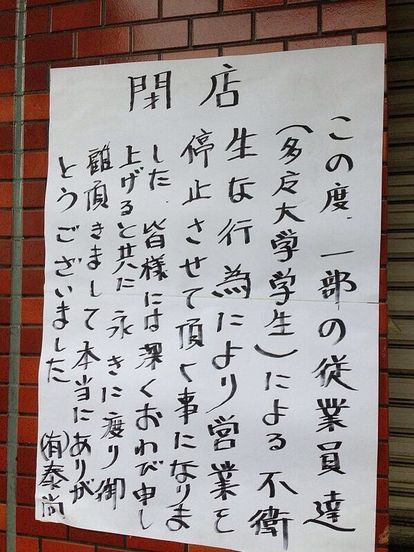 閉店
この度一部の従業員達
(多摩大学学生)による不衛
生な行為により営業を
停止させて頂く事になりま
した 皆様には深くおわび申し
上げると共に永きに渡り御
顧頂きまして本当にありが
とうございました
(有)泰尚